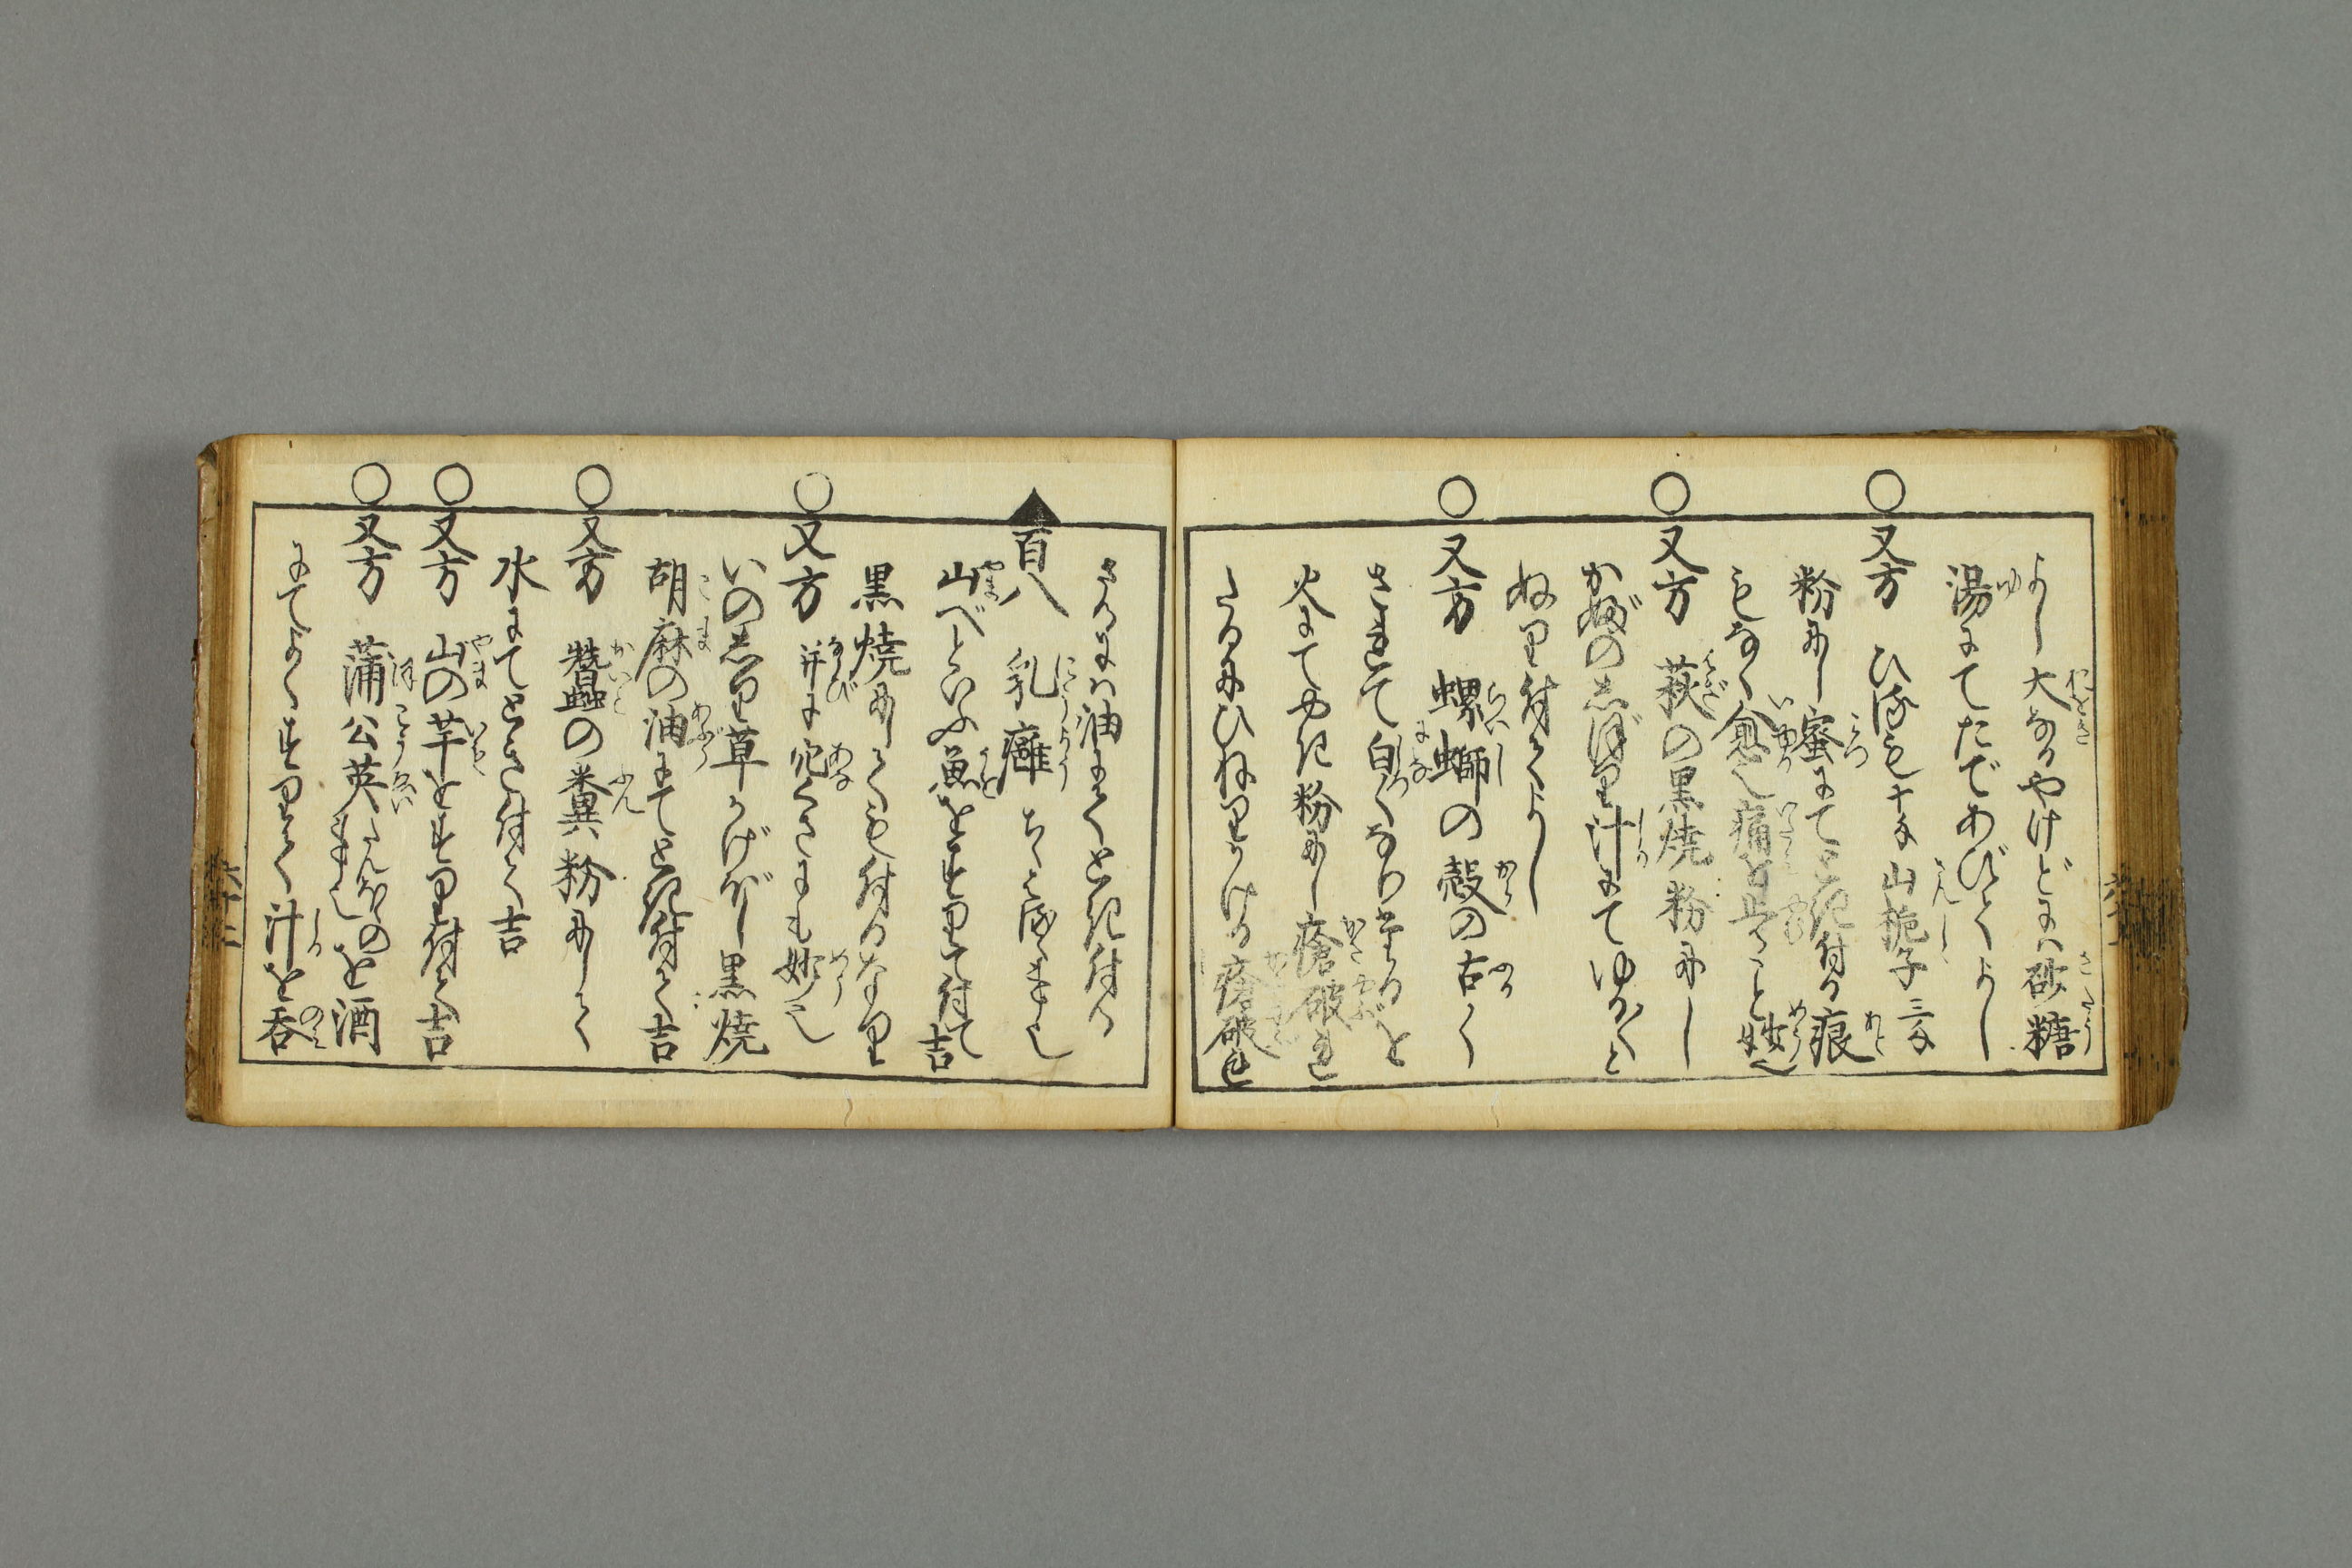 よし大なるやけどには砂糖
湯にてたであびてよし
○又方 ひほも十匁山梔子三匁
粉にし蜜にてとき付る痕
もなく愈る痛を止ること妙也
○又方 萩の黒焼粉にし
かぶの志ぼり汁にてゆる〱と
ぬり付てよし
○又方 螺螄の殻の古く
されて白くなりたるを
火にてやき粉にし瘡破れ
たるにひねりかける瘡破れ
さるには油にてとき付る
百八 乳癰 ちゝのはれ也
山べといふ魚をすりて付て吉
黒焼にしても付るなり
○又方 并に穴くさにも妙也
いの志り草かげぼし黒焼
胡麻の油にてとき付て吉
○又方 蠶の糞粉にして
水にてとき付て吉
○又方 山の芋をすり付て吉
○又方 蒲公英たんぽの事也を酒
にてよくすりて汁を呑
六十二